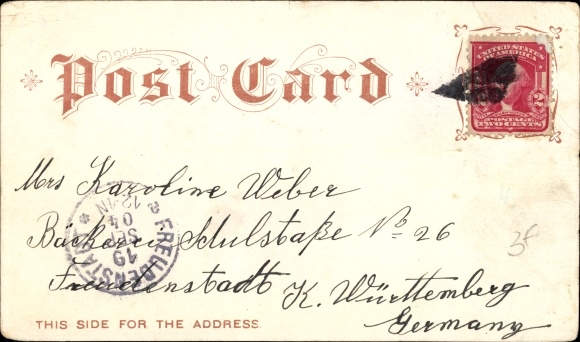 Post Card
UNITED STATES
OF AMERICA
2 2
POSTAGE
TWO CENTS
Mrs Karoline Weber
Bäckerei Schulstaße No 26
Freudenstadt K. Württemberg
Germany
FREUDENSTADT
19
SEP
04
12-1N
THIS SIDE FOR THE ADDRESS.